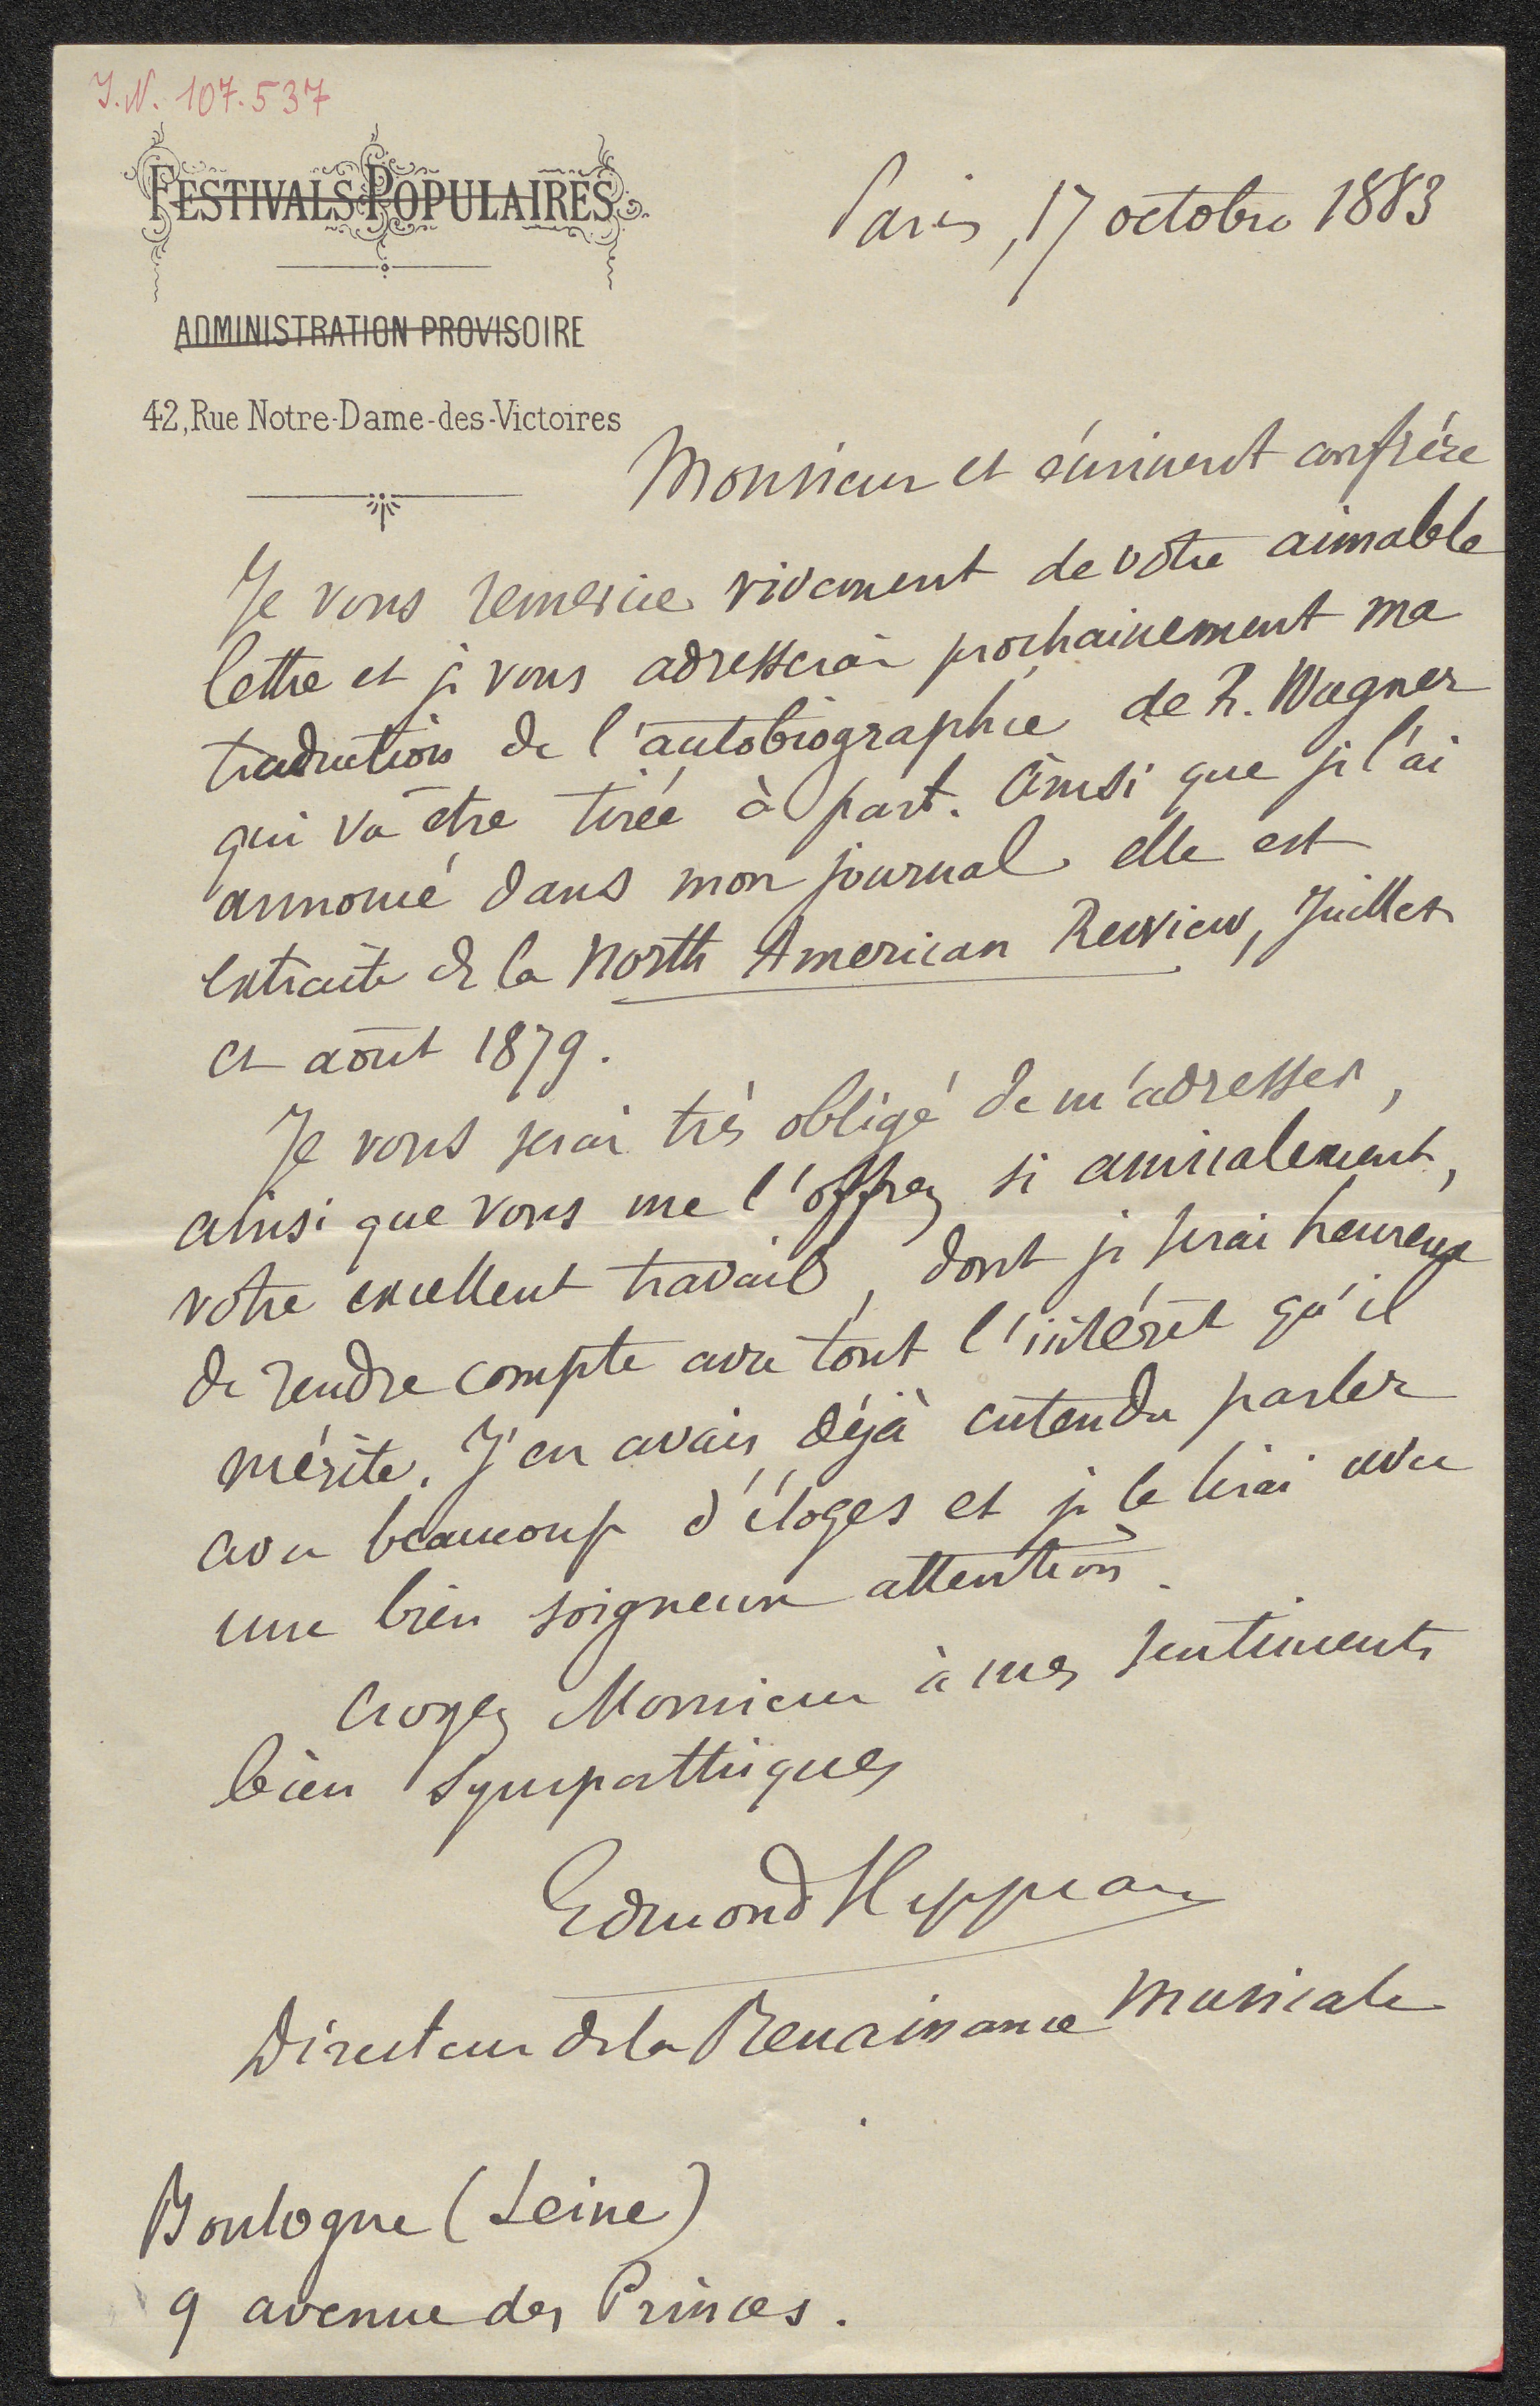 I.N. 107.537
FESTIVALS POPULAIRES
ADMINISTRATION PROVISOIRE
42, Rue Notre-Dame-des-Victoires
Paris, 17 octobre 1883
Monsieur et éminent confrère
Je vous remercie vivement de votre aimable
lettre et je vous adresserai prochainement ma
traduction de l'autobiographie de R. Wagner
qui va être tirée à part. Ainsi que je l'ai
annoncé dans mon journal elle est
extraite de la North American Review, Juillet
et août 1879.
Je vous serai très obligé de m'adresser,
ainsi que vous me l'offrez si amicalement,
votre excellent travail, dont je serai heureux
de rendre compte avec tout l'intérêt qu'il
mérite. J'en avais déjà entendu parler
avec beaucoup d'éloges et je le lirai avec
une bien soigneuse attention.
Croyez Monsieur à mes sentiments
bien sympathiques
Edmond Hippeau
Directeur de la Renaissance Musicale
Boulogne (Seine)
9 avenue des Princes.